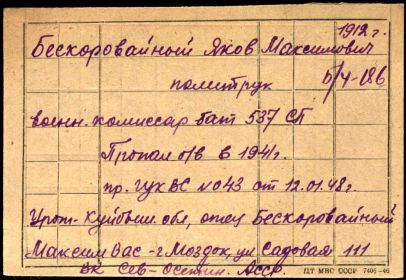 1912 г.
Бескоровайный Яков Максимович
политрук б/ч-186
военн. комиссар бат 537 СП
Пропал б/в в 1941 г.
пр. ГУК ВС №043 от 12.01.48 г.
Урож-Куйбыш. обл, отец Бескоровайный
Максим Вас-г. Моздок, ул Садовая 111
Сев-Осетин. Асср.
ЦТ МВС СССР 7406-46